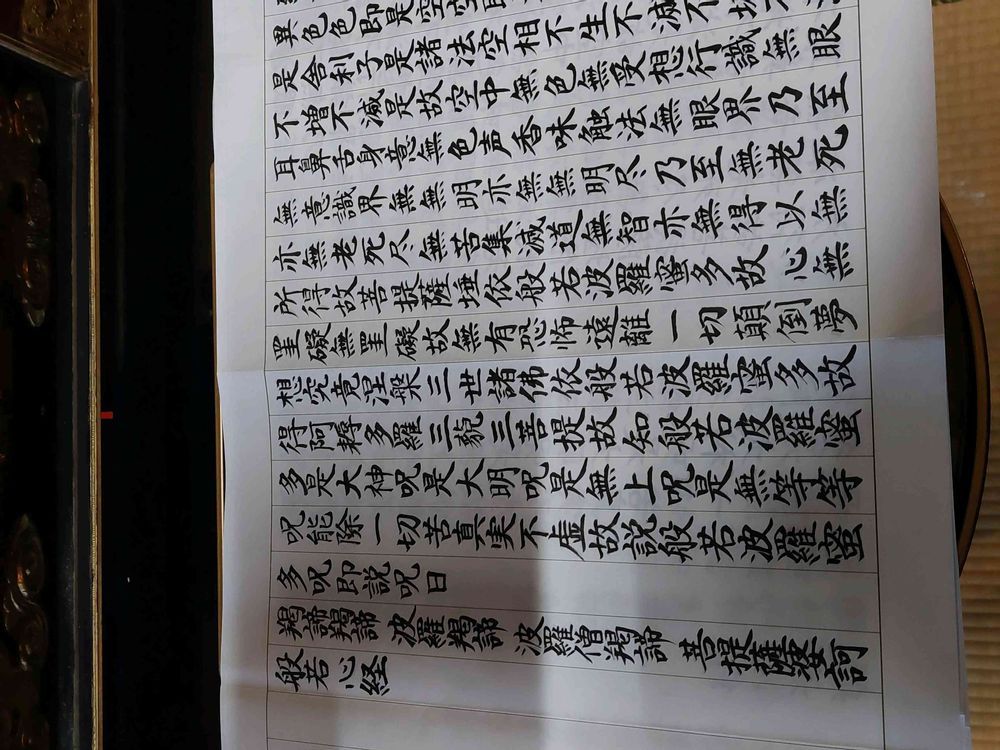 異色色即是空空即
是舍利子是諸法空相不生不滅不垢
不増不減是故空中無色無受想行識無眼
耳鼻舌身意無色声香味触法無眼界乃至
無意識界無無明亦無無明尽乃至無老死
亦無老死尽無苦集滅道無智亦無得以無
所得故菩提薩埵依般若波羅蜜多故心無
罣礙無罣礙故無有恐怖遠離一切顛倒夢
想究竟涅槃三世諸佛依般若波羅蜜多故
得阿耨多羅三藐三菩提故知般若波羅蜜
多是大神呪是大明呪是無上呪是無等等
呪能除一切苦真実不虚故説般若波羅蜜
多呪即説呪曰
羯諦羯諦 波羅羯諦 波羅僧羯諦 菩提薩婆訶
般若心経